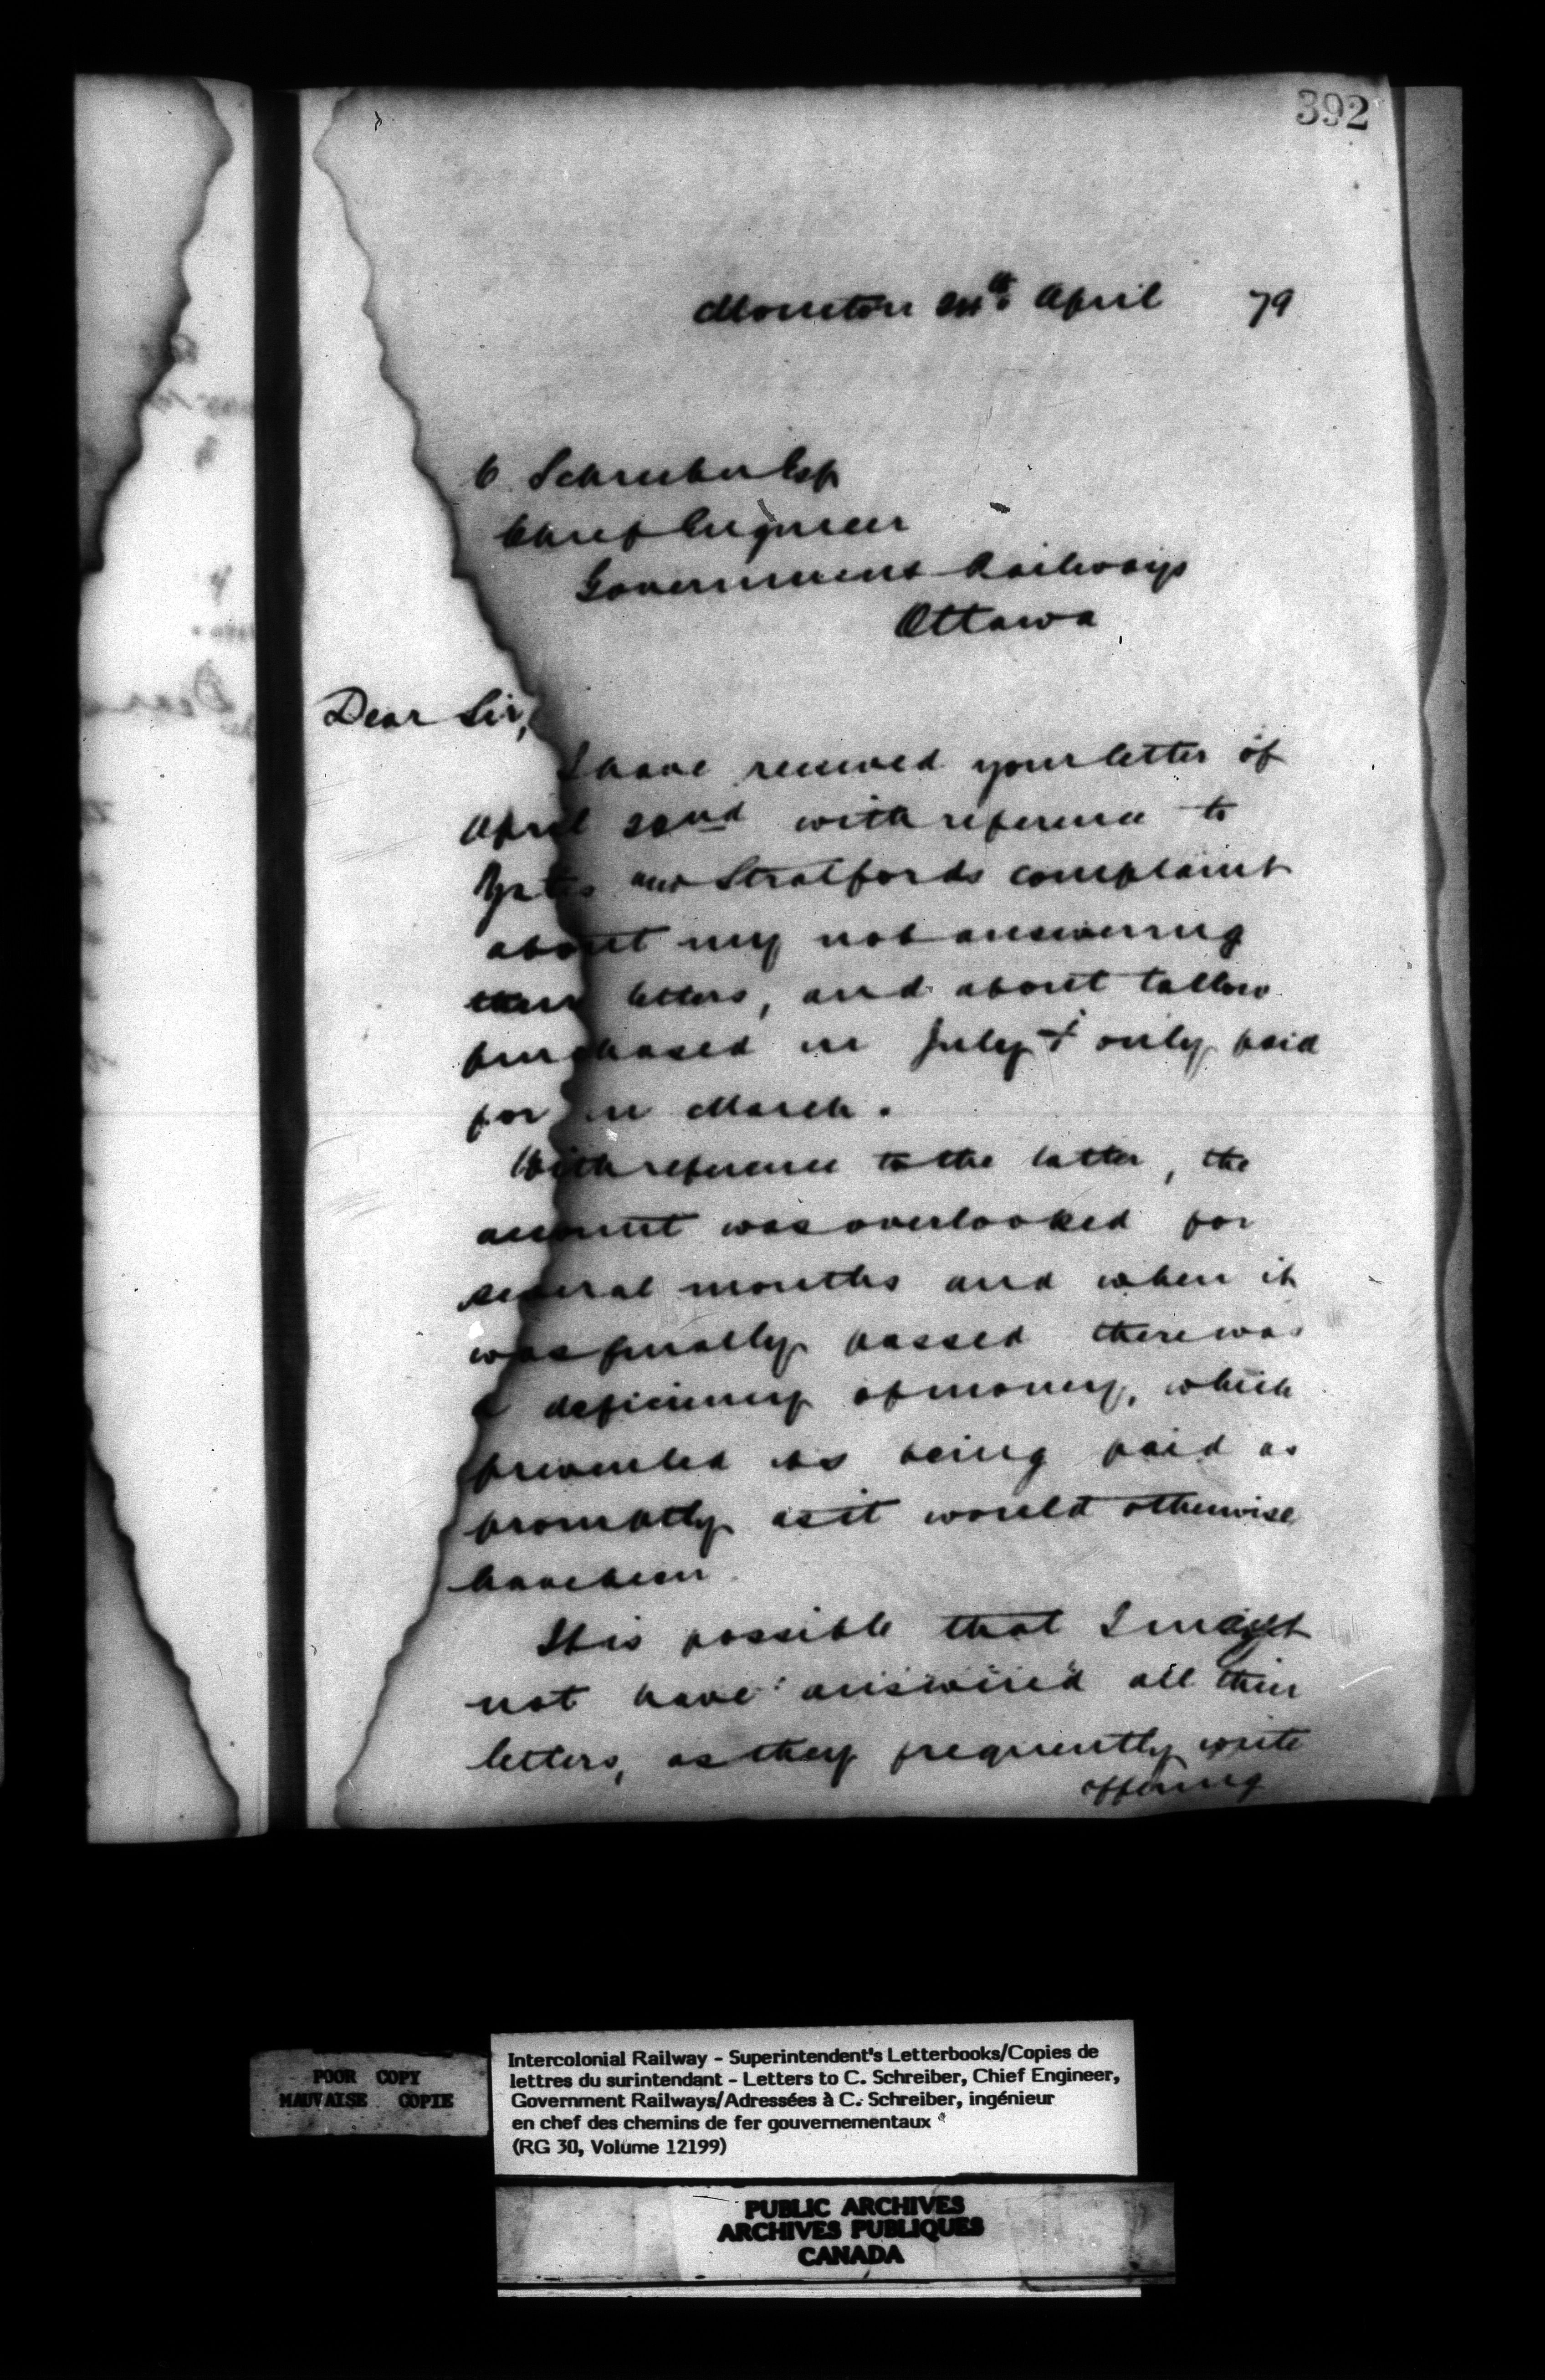 392
Moncton 24th April 79
C Schreiber Esq
Chief Engineer
Government Railways
Ottawa
Dear Sir,
I have received your letter of
April 22nd with reference to
Yates and Stratfords complaint
about my not answering
their letters, and about tallow
purchased in July & only paid
for in March.
With reference to the latter, the
account was overlooked for
several months and when it
was finally passed there was
a deficiency of money, which
prevented its being paid as
promptly as it would otherwise
have been
It is possible that I might
not have answered all their
letters, as they frequently write
offering
POOR COPY
MAUVAISE COPIE
Intercolonial Railway - Superintendent's Letterbooks/Copies de
lettres du surintendant - Letters to C. Schreiber, Chief Engineer,
Government Railways/Adressées à C. Schreiber, ingénieur
en chef des chemins de fer gouvernementaux
(RG 30, Volume 12199)
PUBLIC ARCHIVES
ARCHIVES PUBLIQUES
CANADA